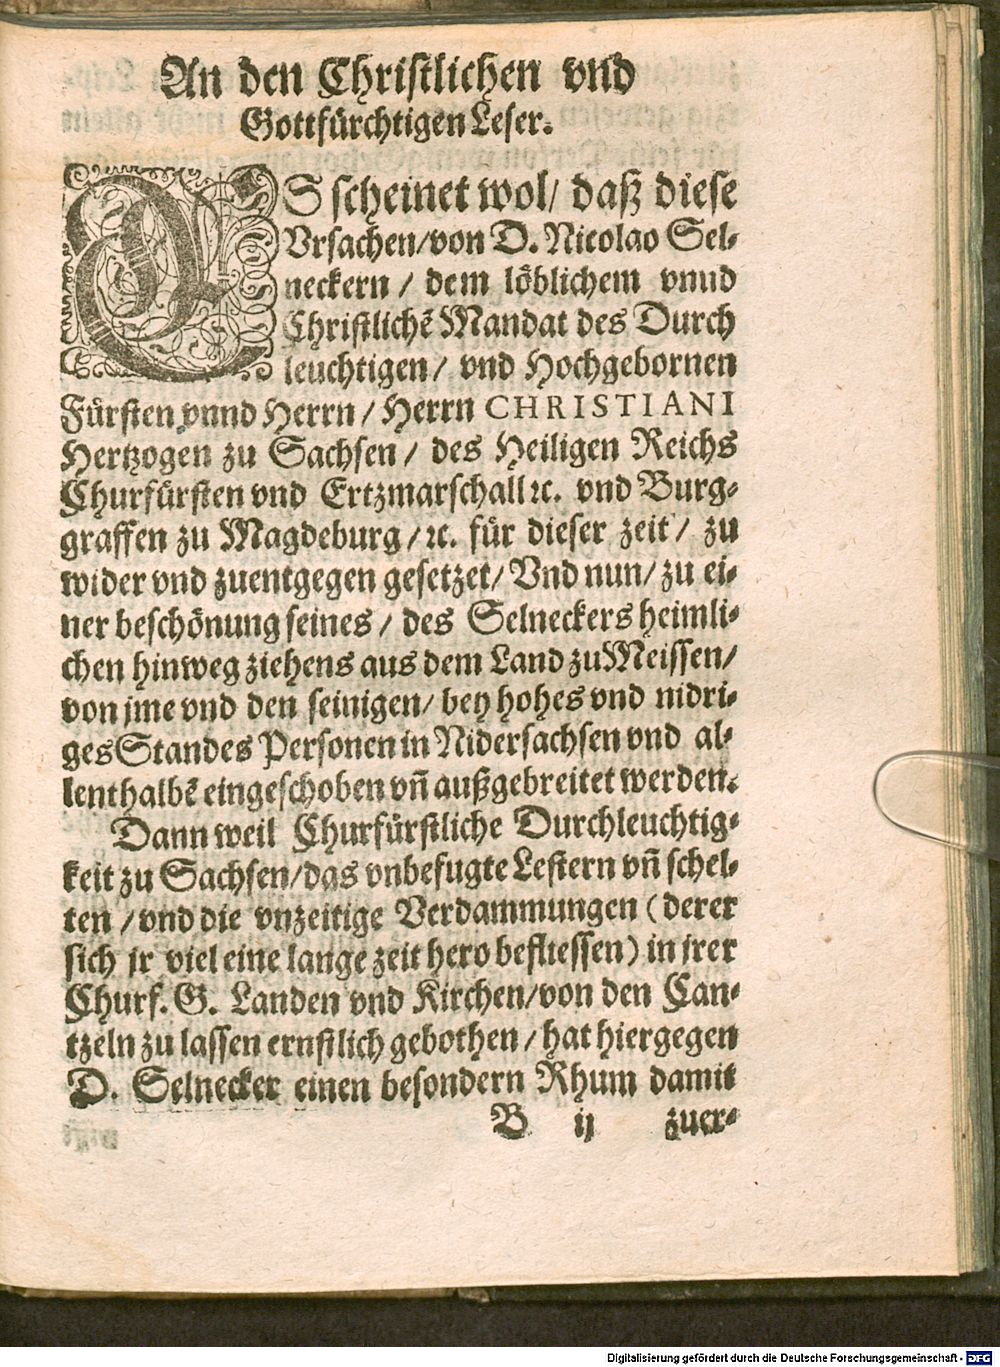 An den Christlichen vnd
Gottfürchtigen Leser.
ES scheinet wol/ daß diese
Vrsachen/von D. Nicolao Sel-
neckern / dem löblichem vnnd
Christlichē Mandat des Durch
leuchtigen/ vnd Hochgebornen
Fürsten vnnd Herrn/ Herrn CHRISTIANI
Hertzogen zu Sachsen/ des Heiligen Reichs
Churfürsten vnd Ertzmarschall ꝛc. vnd Burg-
graffen zu Magdeburg/ꝛc. für dieser zeit/ zu
wider vnd zuentgegen gesetzet/ Vnd nun/ zu ei-
ner beschönung seines/ des Selneckers heimli-
chen hinweg ziehens aus dem Land zu Meissen/
von jme vnd den seinigen/ bey hohes vnd nidri-
ges Standes Personen in Nidersachsen vnd al-
lenthalbē eingeschoben vñ außgebreitet werden.
Dann weil Churfürstliche Durchleuchtig-
keit zu Sachsen/das vnbefugte Lestern vñ schel-
ten/vnd die vnzeitige Verdammungen (derer
sich jr viel eine lange zeit hero befliessen) in jrer
Churf. G. Landen vnd Kirchen/von den Can-
tzeln zu lassen ernstlich gebothen/ hat hiergegen
D. Selnecker einen besondern Rhum damit
B ij zuer-
Digitalisierung gefördert durch die Deutsche Forschungsgemeinschaft - DFG